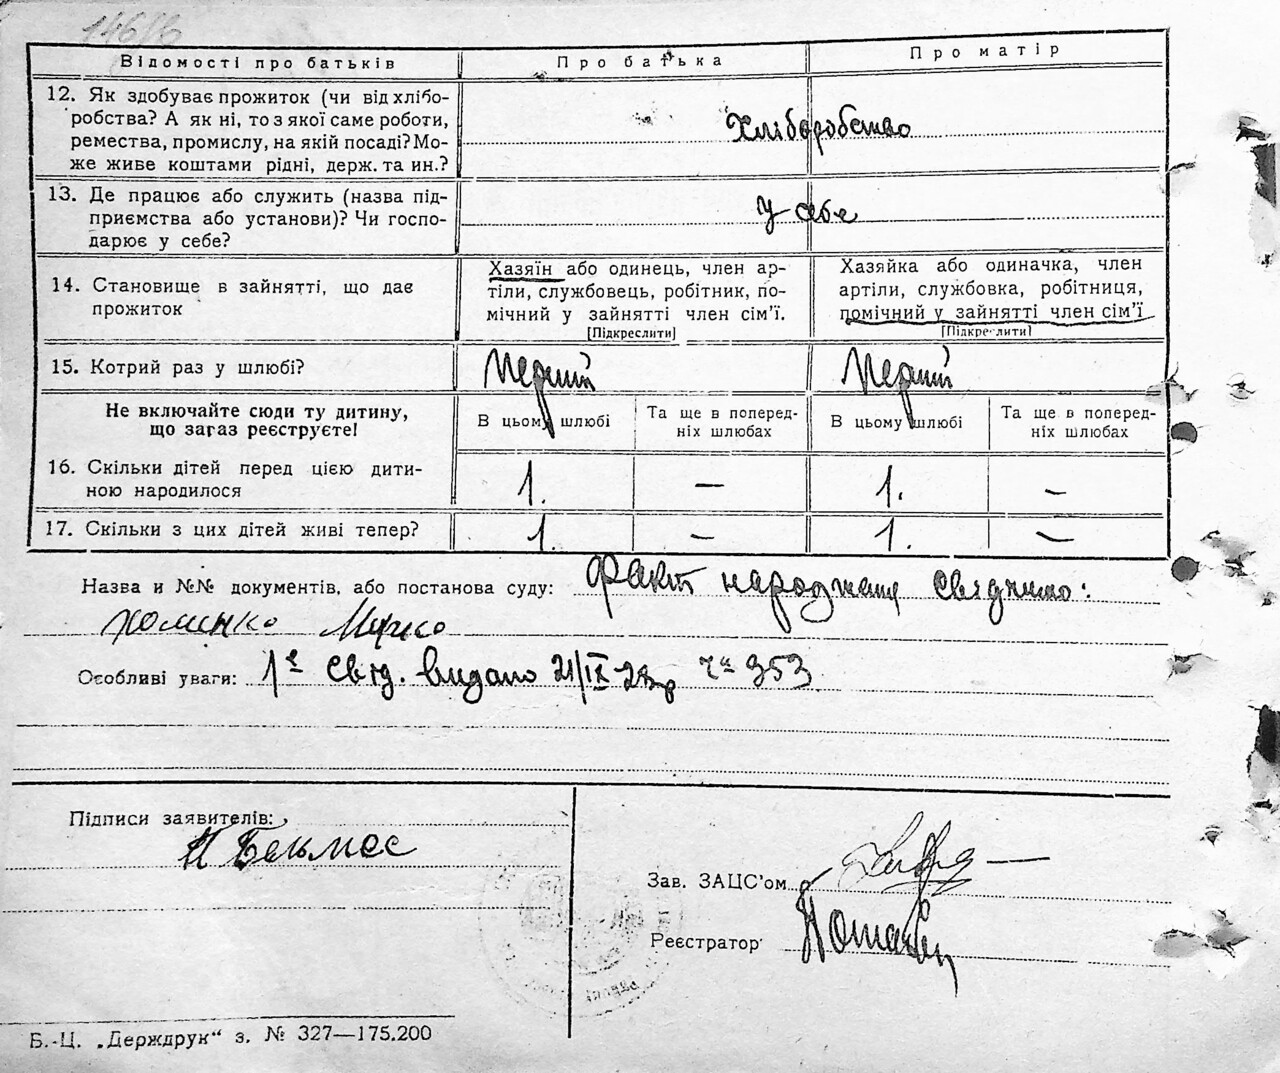 146/6
Відомості про батьків Про батька Про матір
12. Як здобуває прожиток (чи від хлібо-
робства? А як ні, то з якої саме роботи,
ремества, промислу, на якій посаді? Мо-
же живе коштами рідні, держ. та ин.?
Хліборобство
13. Де працює або служить (назва під-
приємства або установи)? Чи госпо-
дарює у себе?
У себе
14. Становище в зайнятті, що дає
прожиток
Хазяїн або одинець, член ар-
тіли, службовець, робітник, по-
мічний у зайнятті член сім'ї.
[Підкреслити]
Хазяйка або одиначка, член
артіли, службовка, робітниця,
помічний у зайнятті член сім'ї
[Підкреслити]
15. Котрий раз у шлюбі? Перший Перший
Не включайте сюди ту дитину,
що загаз реєструєте!
В цьому шлюбі
Та ще в поперед-
ніх шлюбах
В цьому шлюбі
Та ще в поперед-
ніх шлюбах
16. Скільки дітей перед цією дити-
ною народилося
1. — 1. —
17. Скільки з цих дітей живі тепер? 1. — 1. —
Назва и №№ документів, або постанова суду: Факт народження свідчило:
Хоменко Марко
Особливі уваги: Свід. видано 21/IX 353
Підписи заявителів:
Зав. ЗАЦС'ом
Реєстратор
Б.-Ц. „Держдрук" з. № 327—175.200